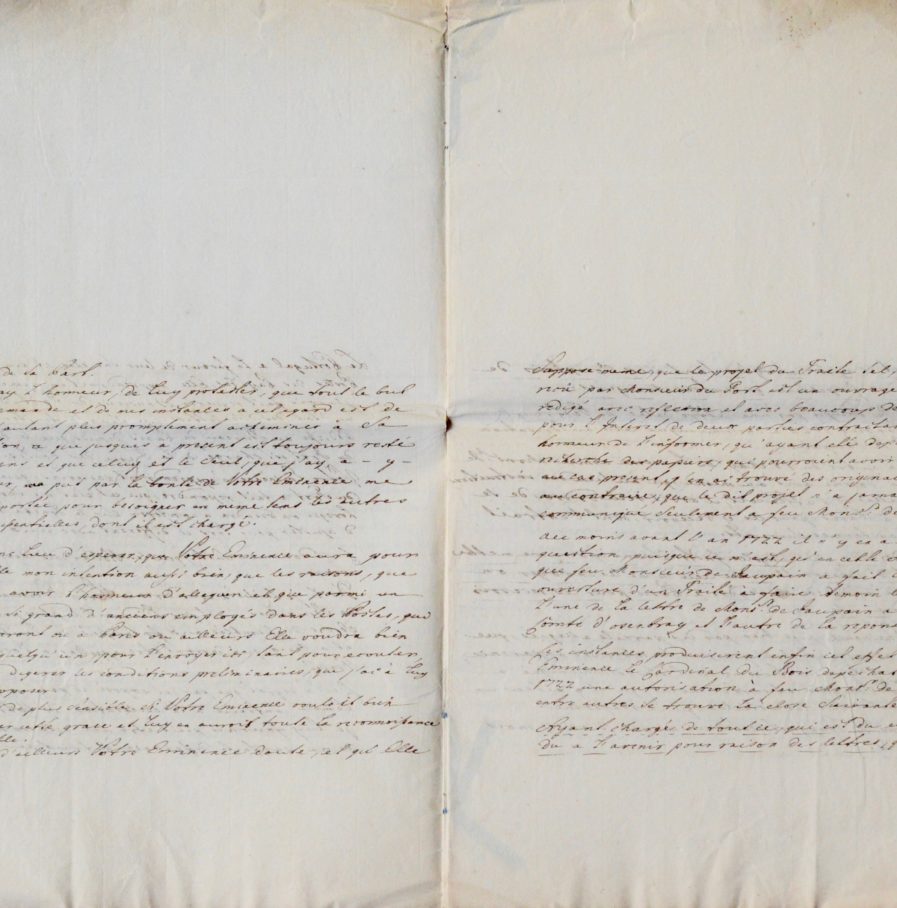 de sa part.
ay l'honneur, de Luy protester, que tout le but
emande et de mes instances a cet egard est de
autant plus promptement acheminer a Sa
a que jusques a present est toujours resté
ens et que celuy et le seul, que j'ay, a - y -
pas par la bonté de Votre Eminence me
portée pour besoigner en meme tems les autres
essentielles, dont il est chargé.
lieu d'esperer, que Votre Eminence aura pour
mon intention aussi bien, que les raisons, que
avoir l'honneur d'alleguer et que parmi un
si grand d'anciens employés dans les Postes, qui
ou a Paris ou ailleurs Elle voudra bien
quelqu'un pour l'envoyer ici tant pour ecouter
digerer les conditions preliminaires, que j'ai à Luy
oposer
de plus sensible si Votre Eminence vouloit bien
cette grace et Luy en auroit toute la reconnoissance
lle.
d'ailleurs Votre Eminence doute, et qu'Elle
Suppose meme, que le projet du Traité
par Monsieur du Port est un ouvrage
redigé avec reflexion et avec beaucoup de
pour l'Interet de deux parties contractan
honneur de l'informer, qu'ayant
des papiers, qui pourroient avoir
au cas present, j'en ai trouvé des origina
au contraire, que le dit projet n'a jama
communiqué seulement a feu Mons.r de
moins avant l'an 1722 il n'y en a
question, puisque ce n'est, qu'en celle
que feu Monsieur de Saupain a fait
ouverture d'un Traité a faire, temoin
l'une de la lettre de Mons.r de Saupain a
Comte d'Osenbray et l'autre de la repons
Ses instances produisirent enfin cet effet
Eminence le Cardinal du Bois depechat
1722 une autorisation a feu Mons.r de
entre autres se trouve la close suivante
Ayant chargé de tout ce, qui est du e
du a l'avenir pour raison des lettres, q